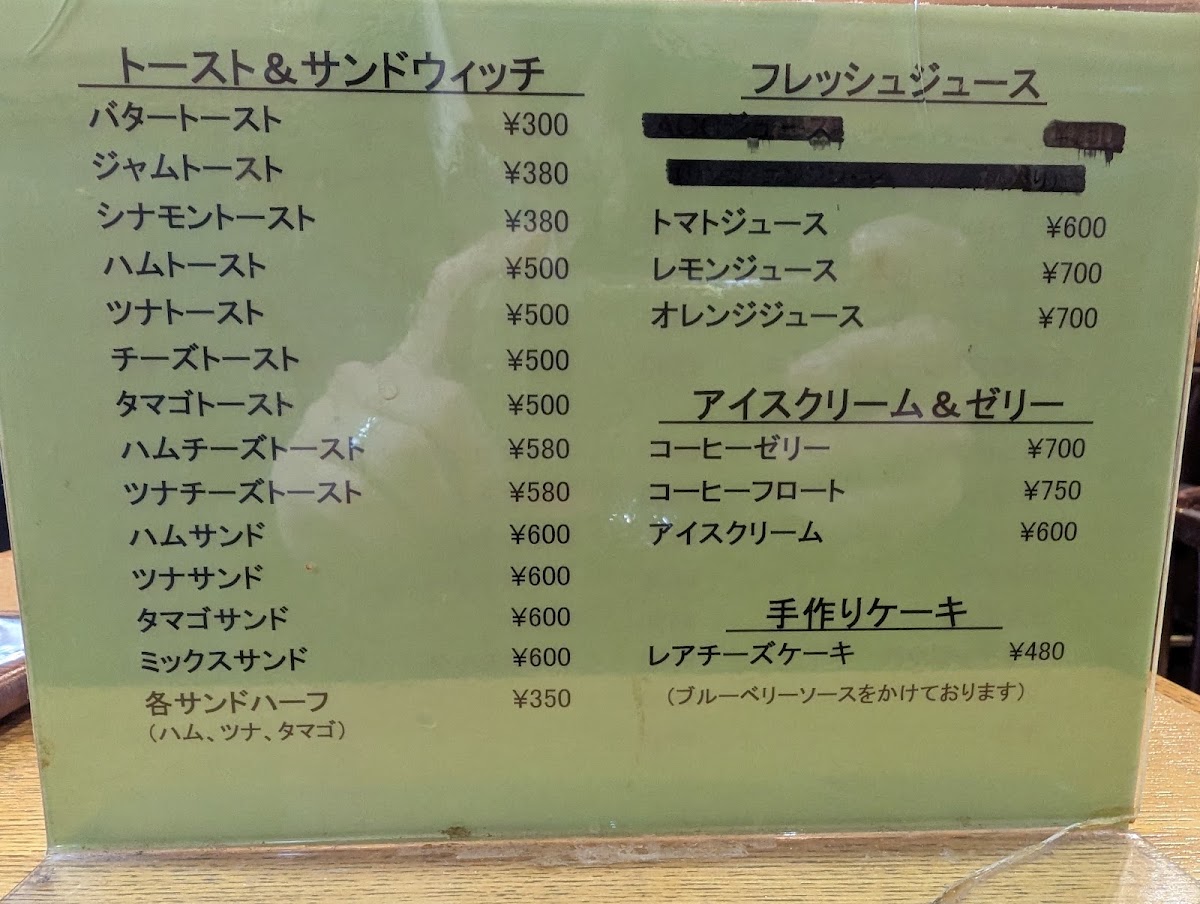 トースト＆サンドウィッチ
バタートースト ¥300
ジャムトースト ¥380
シナモントースト ¥380
ハムトースト ¥500
ツナトースト ¥500
チーズトースト ¥500
タマゴトースト ¥500
ハムチーズトースト ¥580
ツナチーズトースト ¥580
ハムサンド ¥600
ツナサンド ¥600
タマゴサンド ¥600
ミックスサンド ¥600
各サンドハーフ ¥350
（ハム、ツナ、タマゴ）
フレッシュジュース
トマトジュース ¥600
レモンジュース ¥700
オレンジジュース ¥700
アイスクリーム＆ゼリー
コーヒーゼリー ¥700
コーヒーフロート ¥750
アイスクリーム ¥600
手作りケーキ
レアチーズケーキ ¥480
（ブルーベリーソースをかけております）